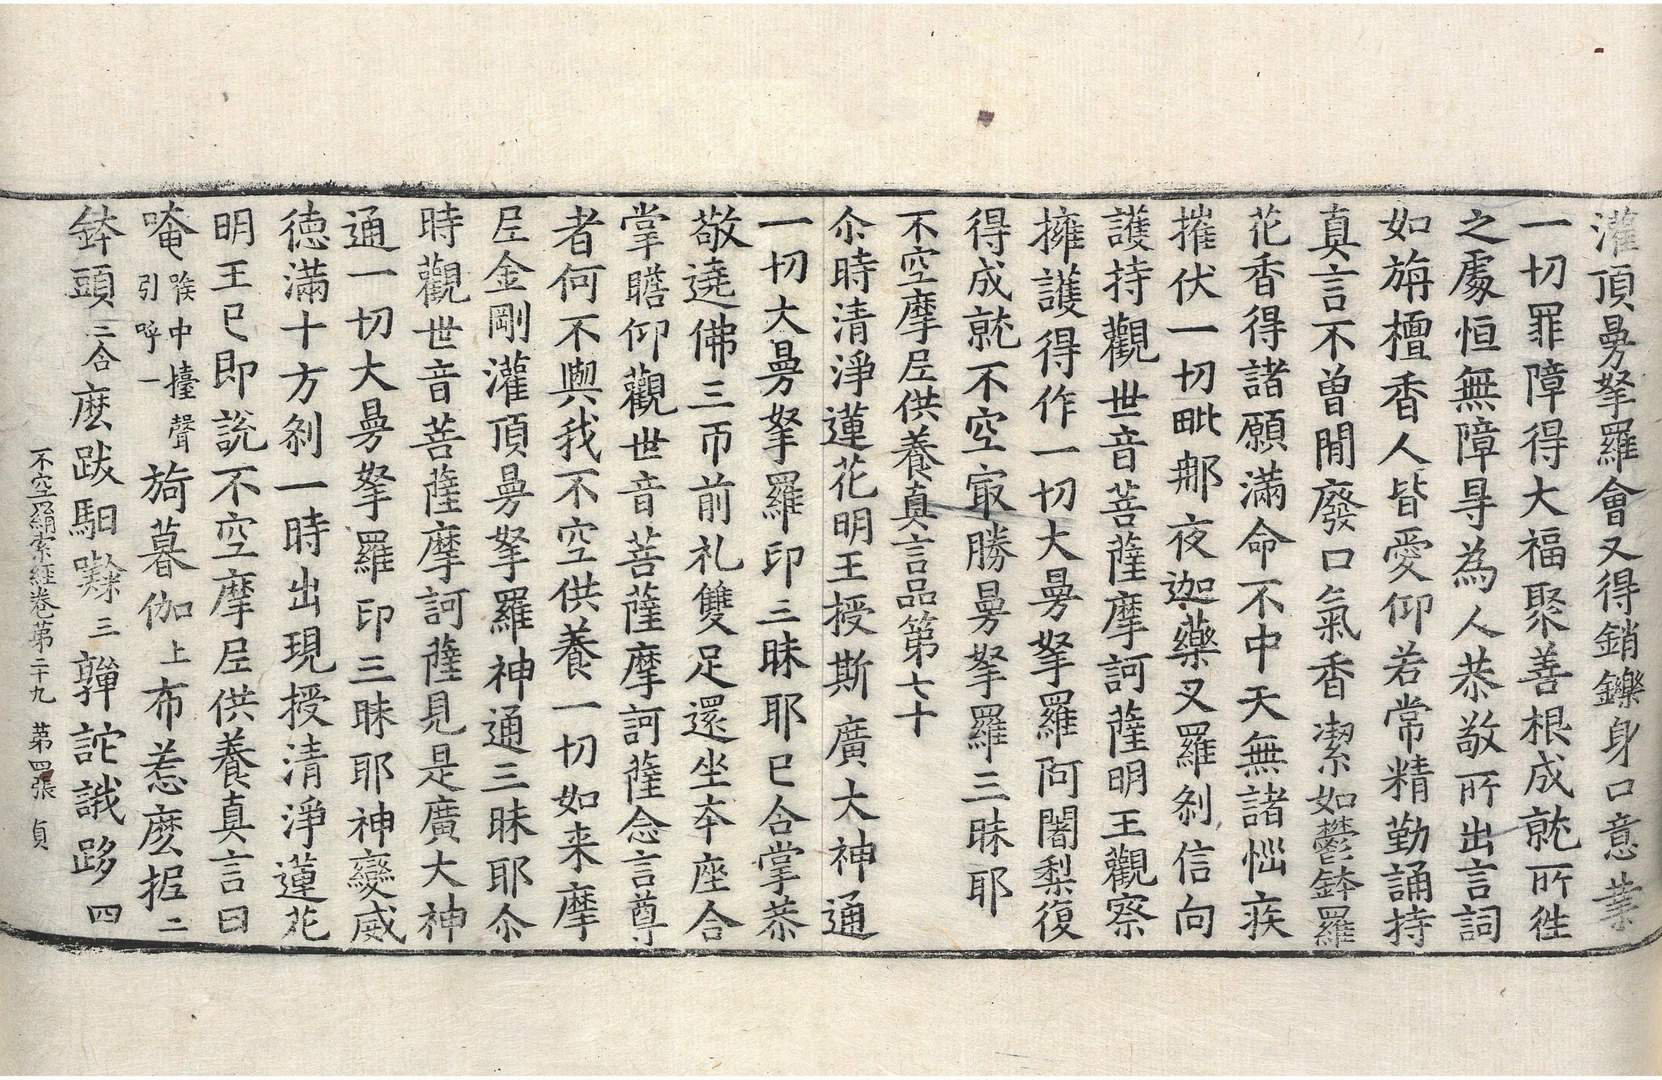 灌頂曼拏羅會又得銷鑠身口意業
一切罪障得大福聚善根成就所徃
之處恒無障㝵為人恭敬所出言詞
如旃檀香人皆愛仰若常精勤誦持
真言不曾閒廢口氣香潔如鬱鉢羅
花香得諸願滿命不中夭無諸惱疾
摧伏一切毗那夜迦藥叉羅剎信向
護持觀世音菩薩摩訶薩明王觀察
擁護得作一切大曼拏羅阿闍梨復
得成就不空㝡勝曼拏羅三昧耶
不空摩尼供養真言品第七十
尒時清淨蓮花明王授斯廣大神通
一切大曼拏羅印三昧耶已合掌恭
敬遶佛三帀前礼雙足還坐本座合
掌瞻仰觀世音菩薩摩訶薩念言尊
者何不與我不空供養一切如来摩
尼金剛灌頂曼拏羅神通三昧耶尒
時觀世音菩薩摩訶薩見是廣大神
通一切大曼拏羅印三昧耶神變威
徳滿十方剎一時出現授清淨蓮花
明王已即說不空摩尼供養真言曰
唵喉中擡聲引呼一旖暮伽上布惹麽抳二
鉢頭三合麽跋馹㘑三嚲詑誐跢四
不空羂索經卷第二十九 第四張 貞